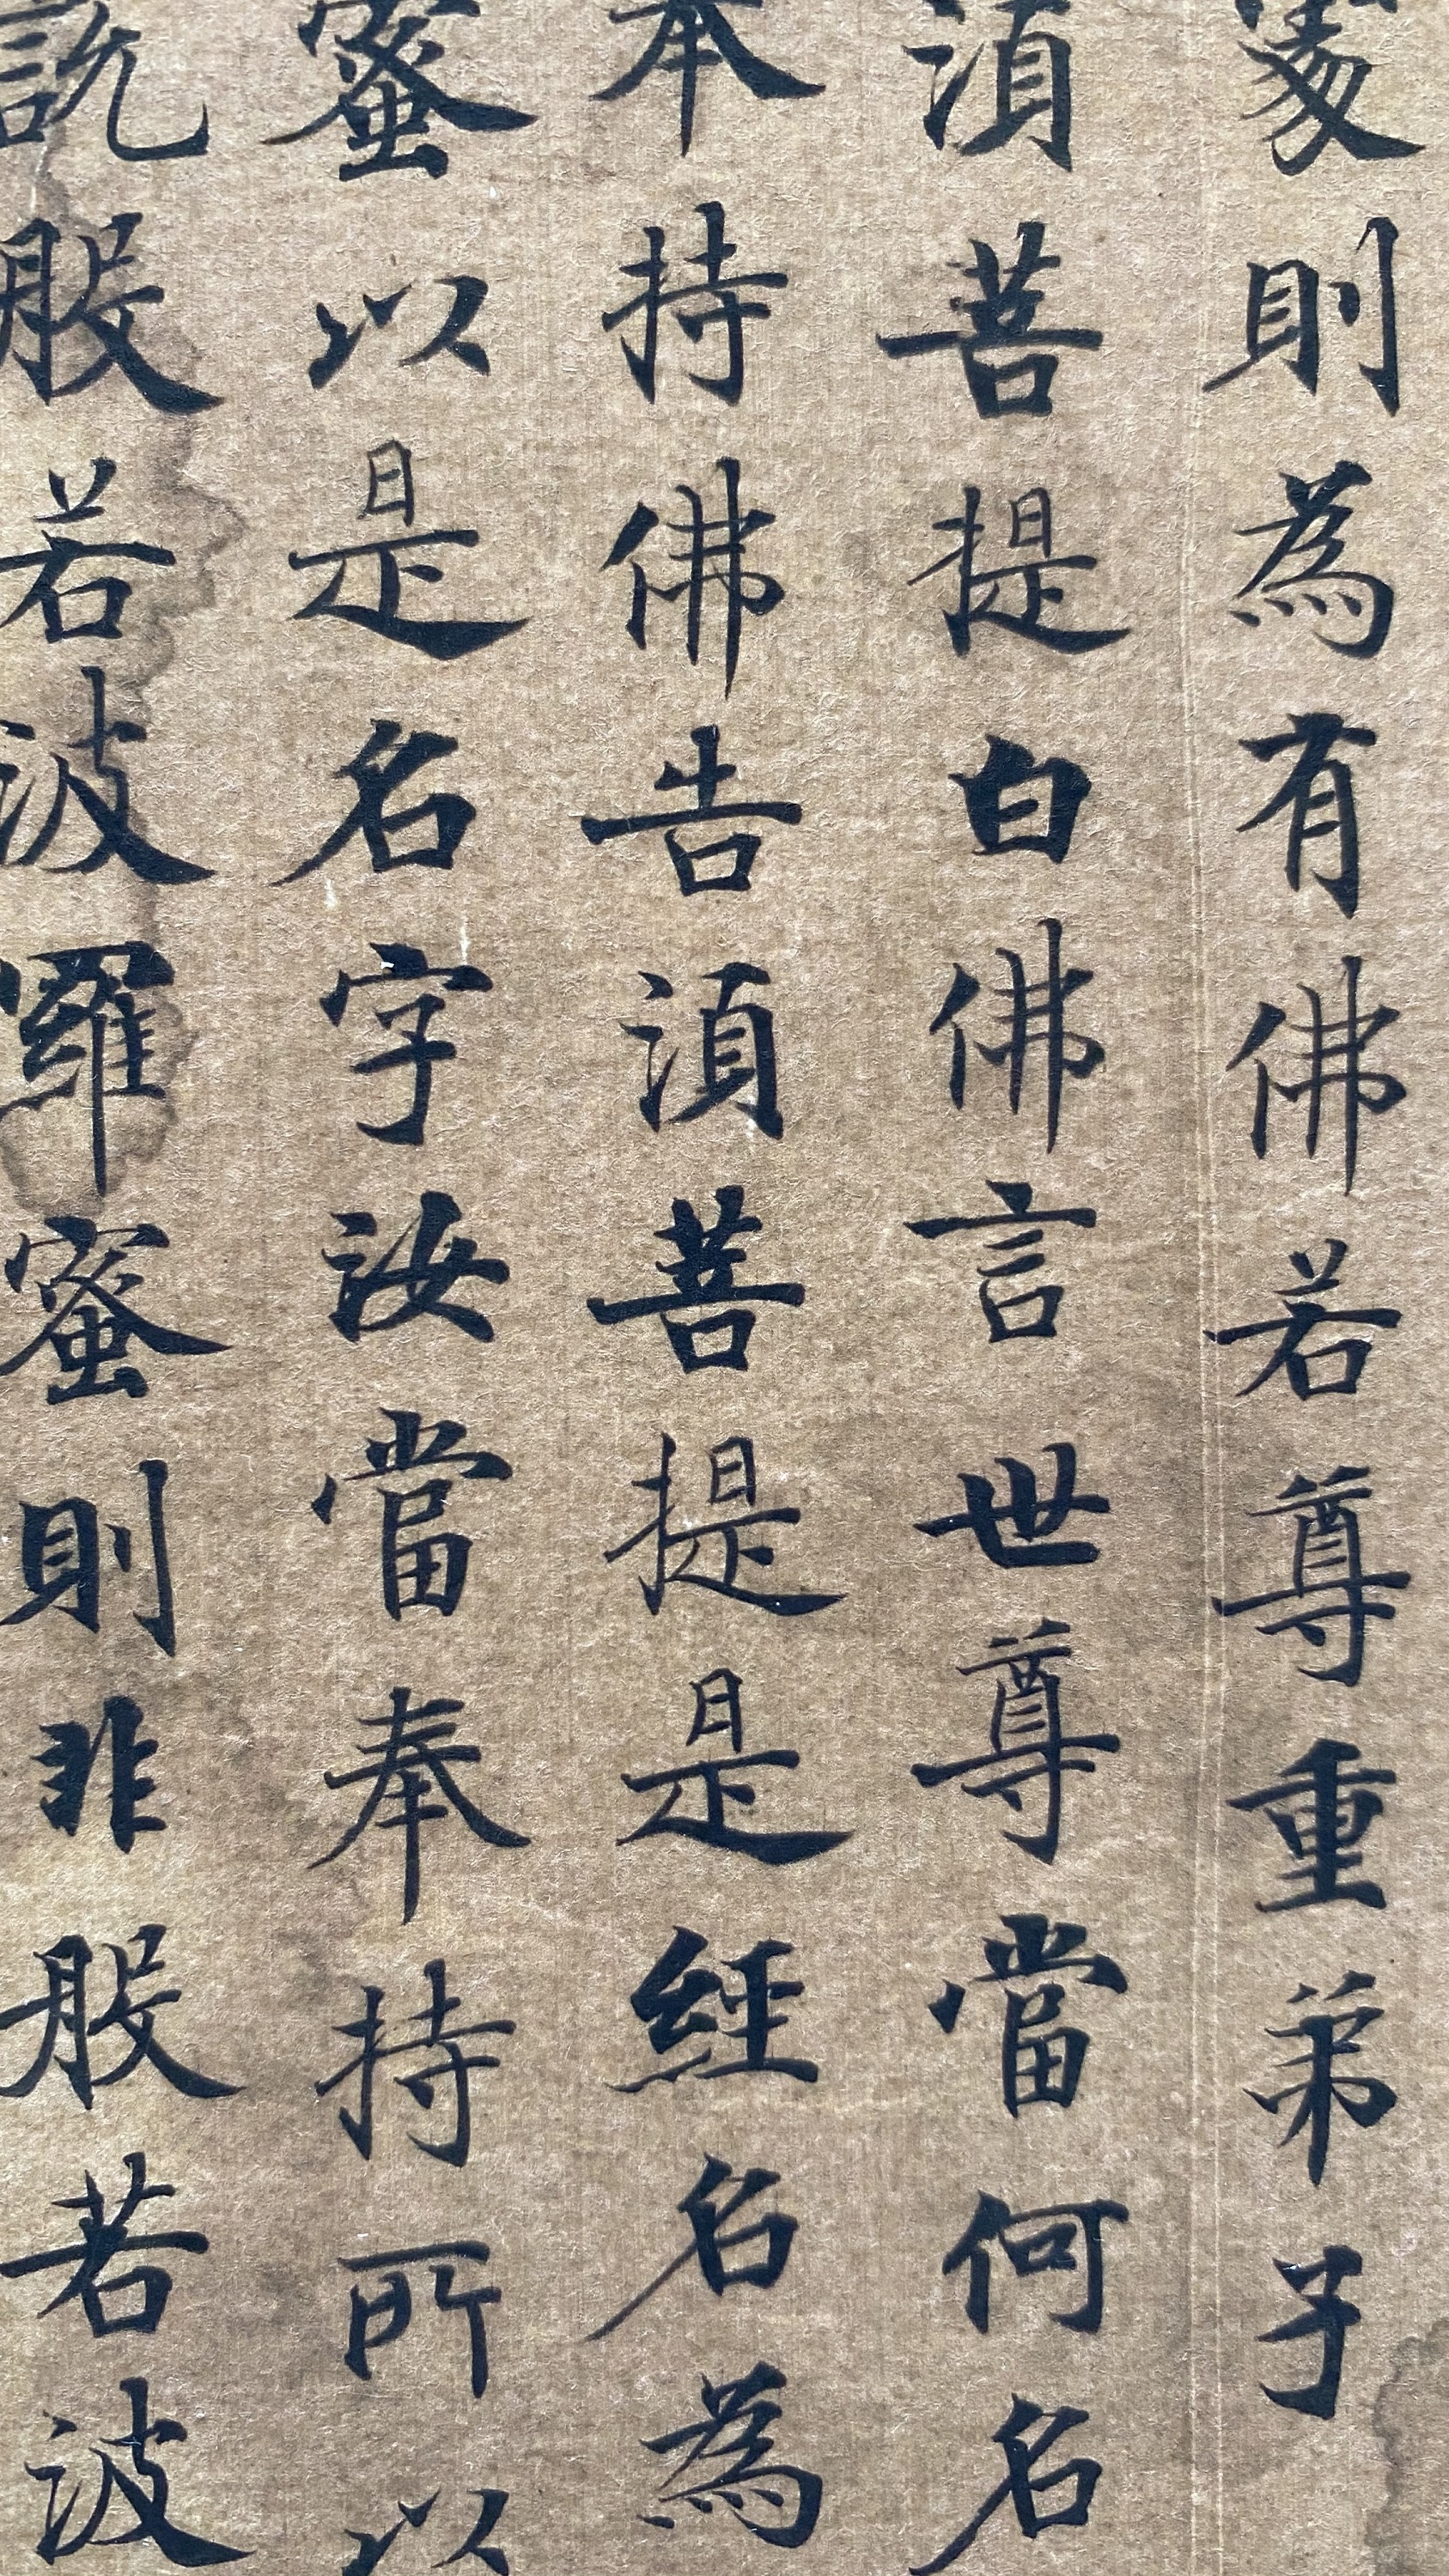 處則為有佛若尊重弟子
湏菩提白佛言世尊當何名
奉持佛告湏菩提是經名為
蜜以是名字汝當奉持所以
說般若波羅蜜則非般若波